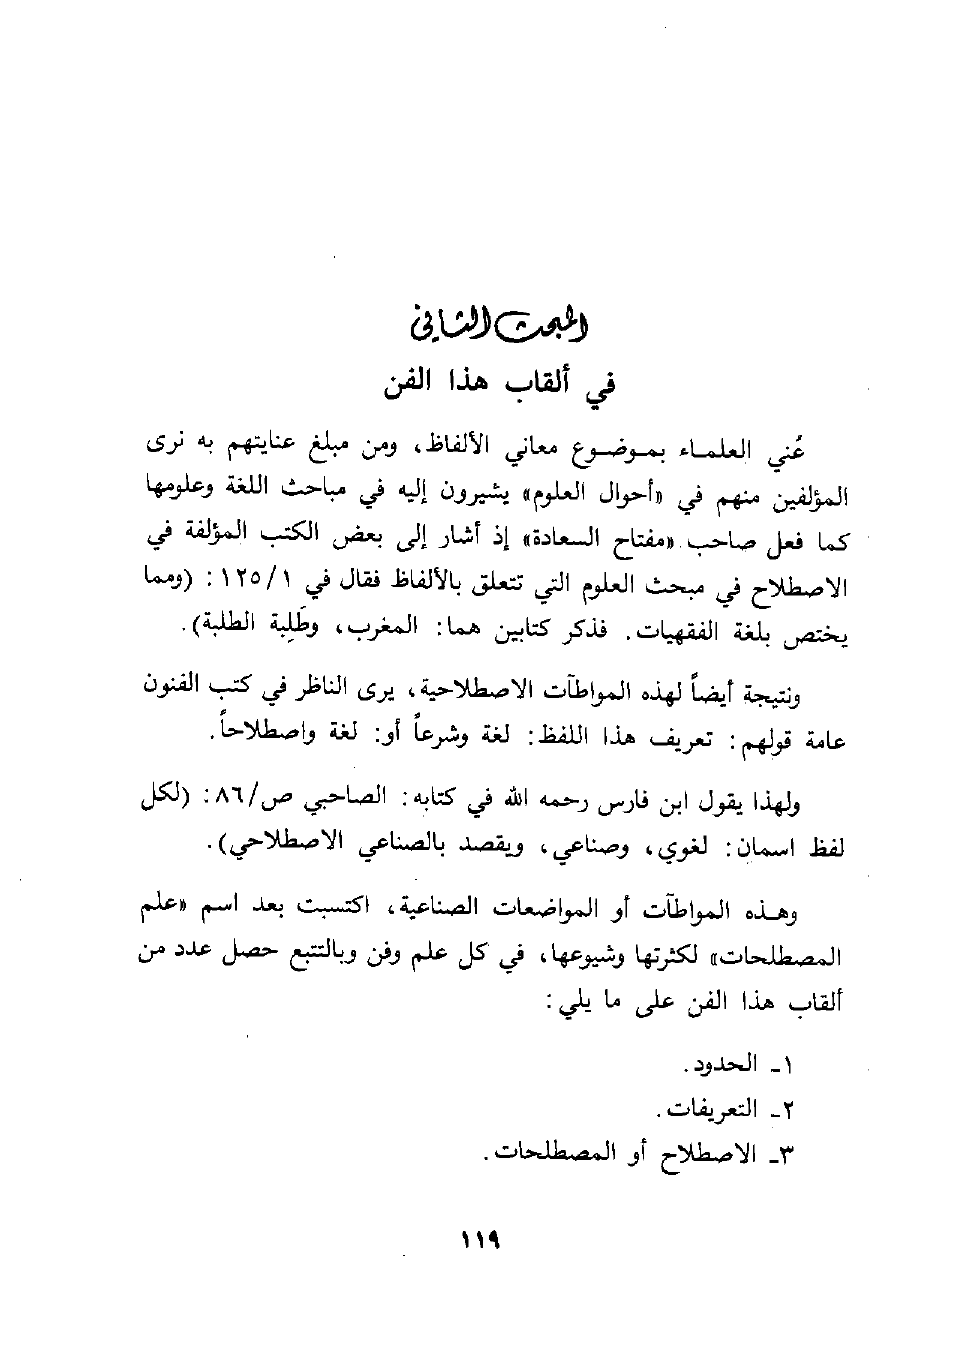 المبحث الثاني
في ألقاب هذا الفن
عُني العلماء بموضوع معاني الألفاظ، ومن مبلغ عنايتهم به نرى
المؤلفين منهم في «أحوال العلوم» يشيرون إليه في مباحث اللغة وعلومها
كما فعل صاحب «مفتاح السعادة» إذ أشار إلى بعض الكتب المؤلفة في
الاصطلاح في مبحث العلوم التي تتعلق بالألفاظ فقال في ١/ ١٢٥: (ومما
يختص بلغة الفقهيات. فذكر كتابين هما: المغرب، وطَلِبة الطلبة).
ونتيجة أيضاً لهذه المواطآت الاصطلاحية، يرى الناظر في كتب الفنون
عامة قولهم: تعريف هذا اللفظ: لغة وشرعاً أو: لغة واصطلاحاً.
ولهذا يقول ابن فارس رحمه الله في كتابه: الصاحبي ص/٨٦: (لكل
لفظ اسمان: لغوي، وصناعي، ويقصد بالصناعي الاصطلاحي).
وهذه المواطآت أو المواضعات الصناعية، اكتسبت بعد اسم «علم
المصطلحات» لكثرتها وشيوعها، في كل علم وفن وبالتتبع حصل عدد من
ألقاب هذا الفن على ما يلي:
١ـ الحدود.
٢ـ التعريفات.
٣ـ الاصطلاح أو المصطلحات.
١١٩